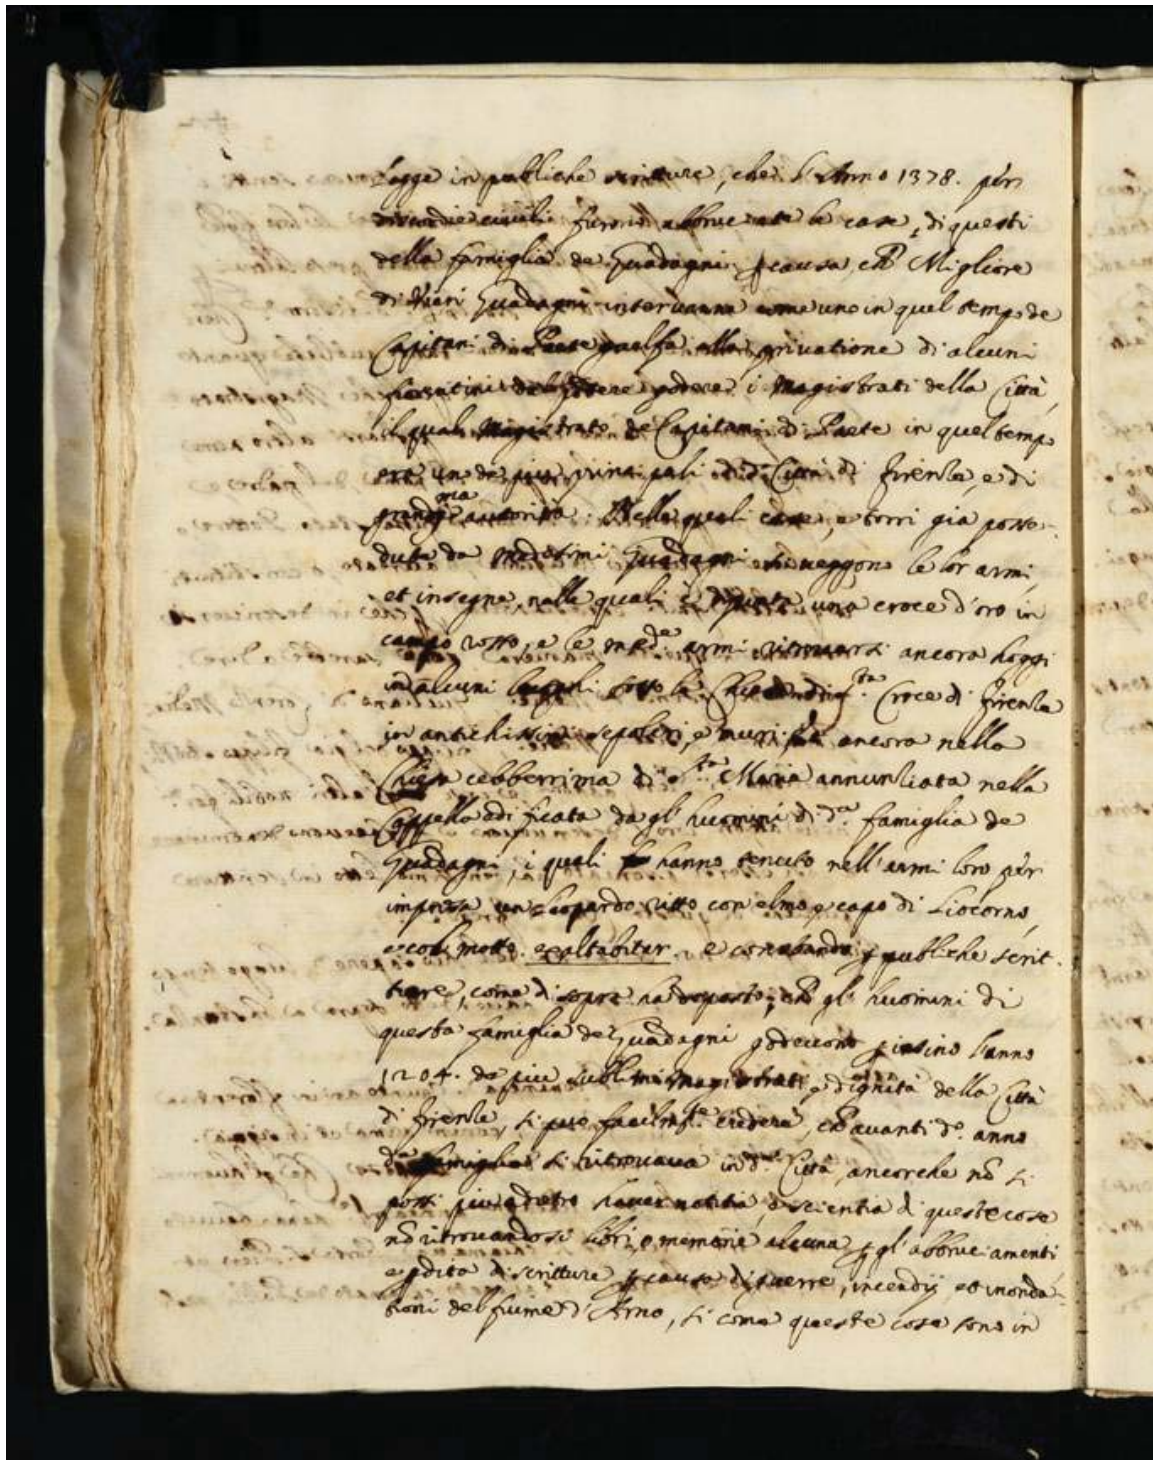 legge in publiche scritture, che l'Anno 1378. per
discordie civili furono abbruciate le case di questi
della famiglia de Guadagni p causa, ch Migliore
di Vieri Guadagni intervenne come uno in quel tempo de
Capitani di Parte guelfa alla privatione di alcuni
fiorentini del potere godere i Magistrati della Città,
il qual Magistrato de Capitani di Parte in quel tempo
era uno de piu principali di d. Città di firenze, e di
grandma autorità. Nelle quali case, e torri gia posse-
dute da medesimi Guadagni si veggono le lor armi,
et insegne, nelle quali è dipinta una croce d'oro in
campo rosso, e le med.e armi ritrovarsi ancora hoggi
in alcuni luoghi sotto la Chiesa di S.ta Croce di firenze
in antichissimi sepolcri, e muri ancora nella
Chiesa celeberrima di S.ta Maria annuntiata nella
Cappella edificata da gl' huomini di d.a famiglia de
Guadagni, i quali hanno tenuto nell'armi loro per
impresa un Leopardo ritto con elmo, e capo di Liocorno,
e col motto exaltabitur. e constando p publiche scrit-
ture, come di sopra ha deposto, ch gl' huomini di
questa famiglia de Guadagni godevono p insino l'anno
1204. de piu sublimi magistrati, e dignità della Città
di firenze, si puo facilmte credere, ch avanti d.o anno
d.a famiglia si ritrovava in d.a Città, ancorche nō si
possi piu adietro haver notitia, e scientia di queste cose
nō ritrovandosi libri, o memorie alcuna p gl' abbruciamenti
e pdita di scritture p causa di guerre, incendij, et inonda-
tioni del fiume d'Arno, si come queste cose sono in